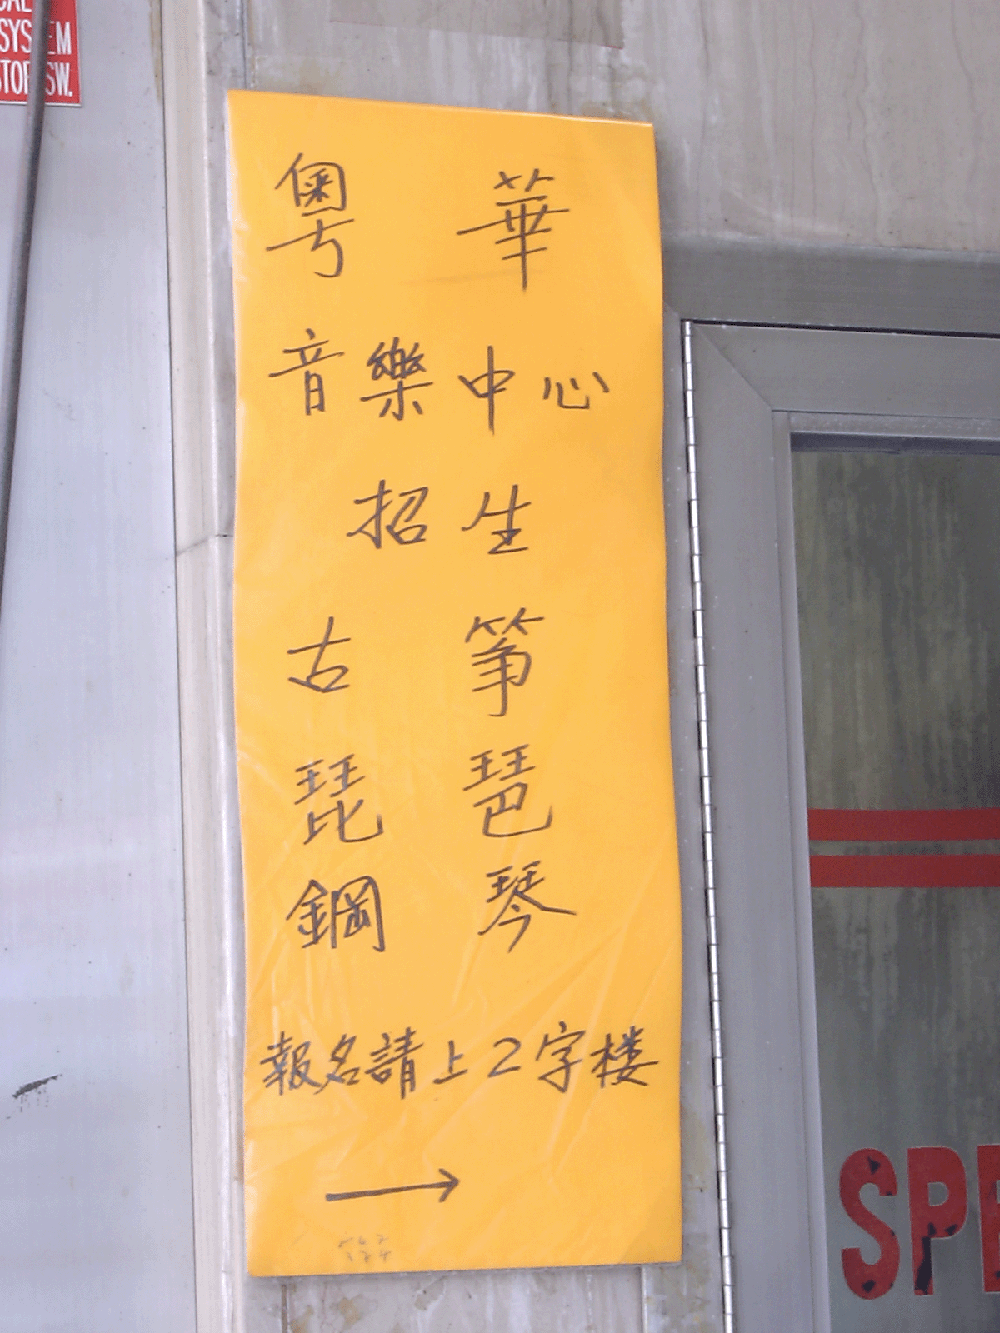 SYSTEM
粵 華
音樂中心
招生
古 箏
琵 琶
鋼 琴
報名請上2字楼
→
SPE